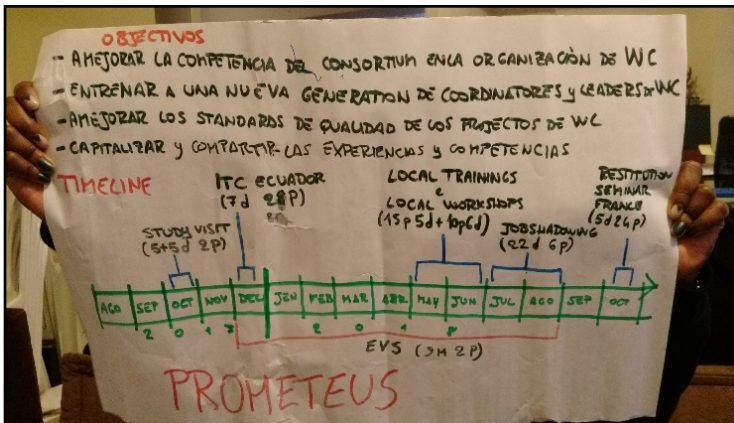 OBJECTIVOS
- AMEJORAR LA COMPETENCIA DEL CONSORTIUM EN LA ORGANIZACIÓN DE WC
- ENTRENAR A UNA NUEVA GENERATION DE COORDINATORES y LEADERS DE WC
- AMEJORAR LOS STANDARDS DE QUALIDAD DE LOS PROJECTOS DE WC
- CAPITALIZAR y COMPARTIR LAS EXPERIENCIAS y COMPETENCIAS
TIMELINE
ITC ECUADOR
(7d 28P)
LOCAL TRAININGS
e
LOCAL WORKSHOPS
(15p 5d + 10p 6d)
RESTITUTION
SEMINAR
FRANCE
(5d 24p)
STUDY VISIT
(5+5d 2P)
JOBSHADOWING
(22d 6p)
AGO SEP OCT NOV DEC JEN FEB MAR ABR MAY JUN JUL AGO SEP OCT
2 0 1 7 2 0 1 8
EVS (9M 2P)
PROMETEUS